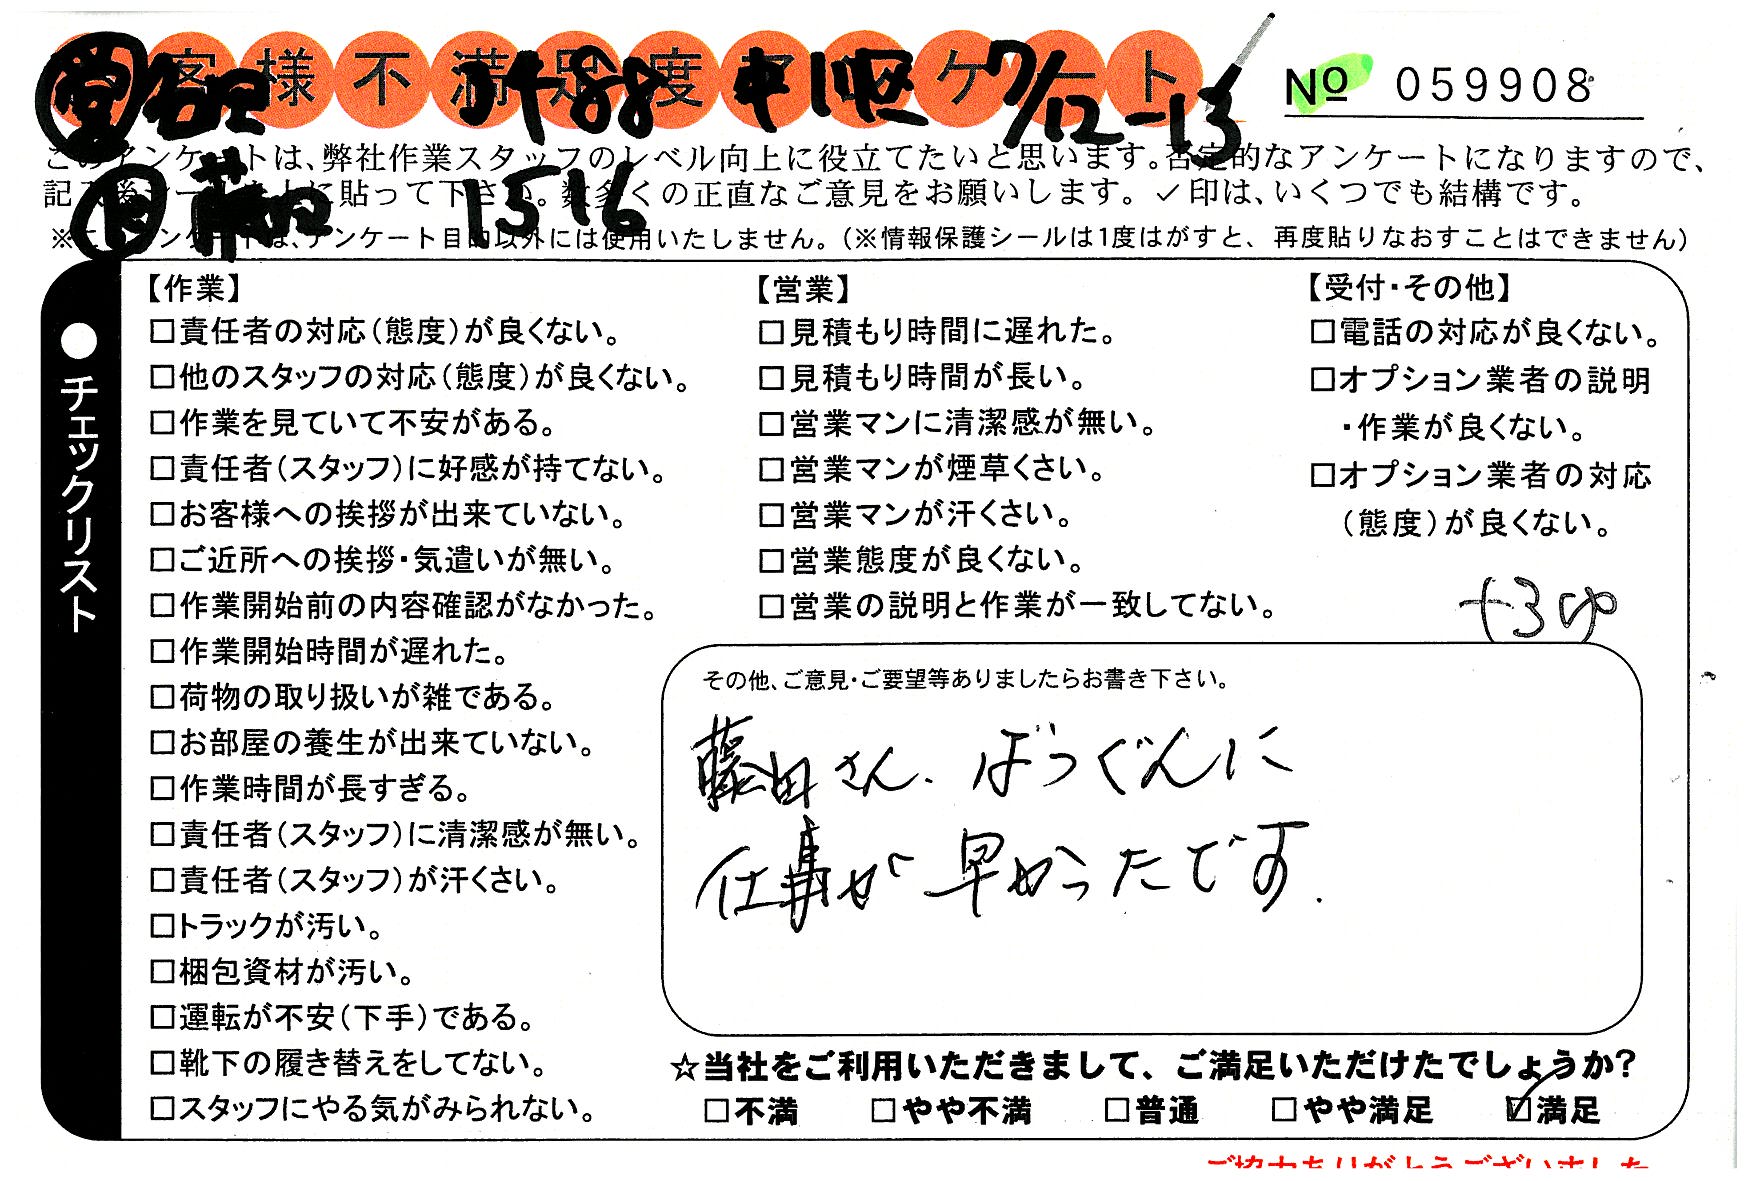 お客様不満足度アンケート
№ 059908
3488 中川区 7/12-13
1516
このアンケートは、弊社作業スタッフのレベル向上に役立てたいと思います。否定的なアンケートになりますので、
記入後シールを上に貼って下さい。数多くの正直なご意見をお願いします。✓印は、いくつでも結構です。
※このアンケートは、アンケート目的以外には使用いたしません。(※情報保護シールは1度はがすと、再度貼りなおすことはできません)
●チェックリスト
【作業】
□責任者の対応(態度)が良くない。
□他のスタッフの対応(態度)が良くない。
□作業を見ていて不安がある。
□責任者(スタッフ)に好感が持てない。
□お客様への挨拶が出来ていない。
□ご近所への挨拶・気遣いが無い。
□作業開始前の内容確認がなかった。
□作業開始時間が遅れた。
□荷物の取り扱いが雑である。
□お部屋の養生が出来ていない。
□作業時間が長すぎる。
□責任者(スタッフ)に清潔感が無い。
□責任者(スタッフ)が汗くさい。
□トラックが汚い。
□梱包資材が汚い。
□運転が不安(下手)である。
□靴下の履き替えをしてない。
□スタッフにやる気がみられない。
【営業】
□見積もり時間に遅れた。
□見積もり時間が長い。
□営業マンに清潔感が無い。
□営業マンが煙草くさい。
□営業マンが汗くさい。
□営業態度が良くない。
□営業の説明と作業が一致してない。
【受付・その他】
□電話の対応が良くない。
□オプション業者の説明
・作業が良くない。
□オプション業者の対応
(態度)が良くない。
その他、ご意見・ご要望等ありましたらお書き下さい。
藤田さん、ばつぐんに
仕事が早かったです.
☆当社をご利用いただきまして、ご満足いただけたでしょうか?
□不満 □やや不満 □普通 □やや満足 ☑満足
ご協力ありがとうございました